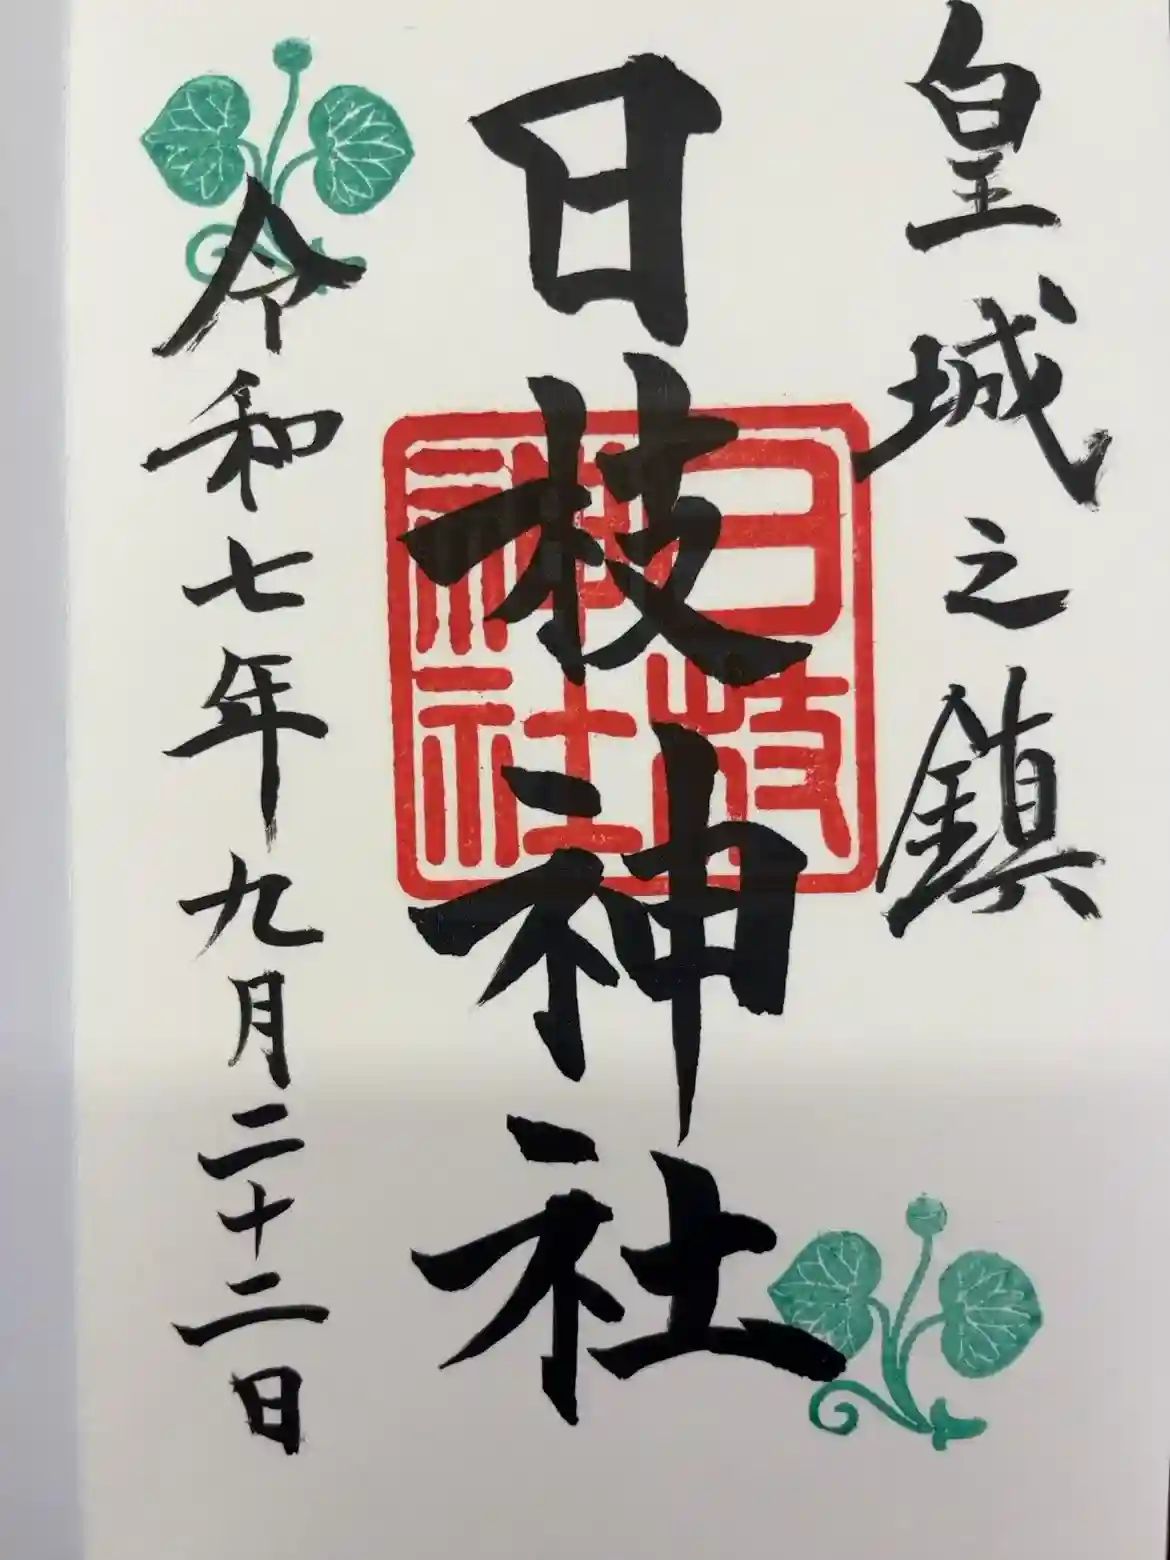 皇城之鎮
日枝神社
日枝神社
令和七年九月二十二日